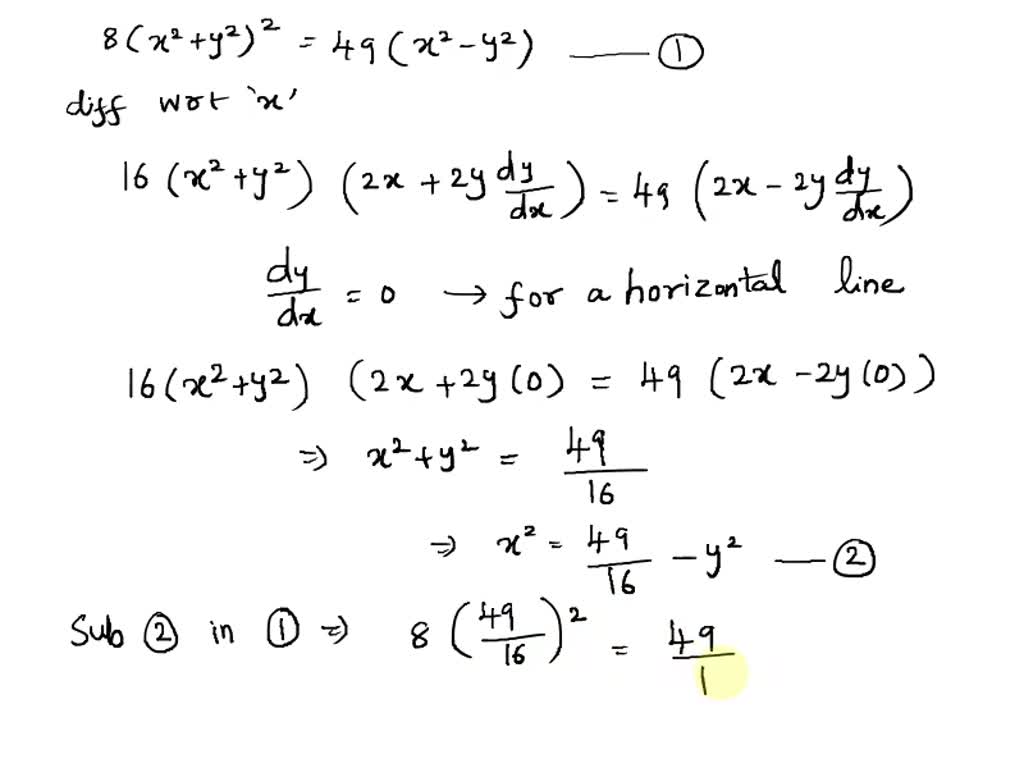 8(x²+y²)² = 49(x²-y²) —— ①
diff wrt 'x'
16(x²+y²)(2x+2y dy/dx) = 49(2x-2y dy/dx)
dy/dx = 0 → for a horizontal line
16(x²+y²) (2x+2y(0) = 49(2x-2y(0))
⇒ x²+y² = 49/16
⇒ x² = 49/16 - y² —— ②
Sub ② in ① ⇒ 8(49/16)² = 49/1